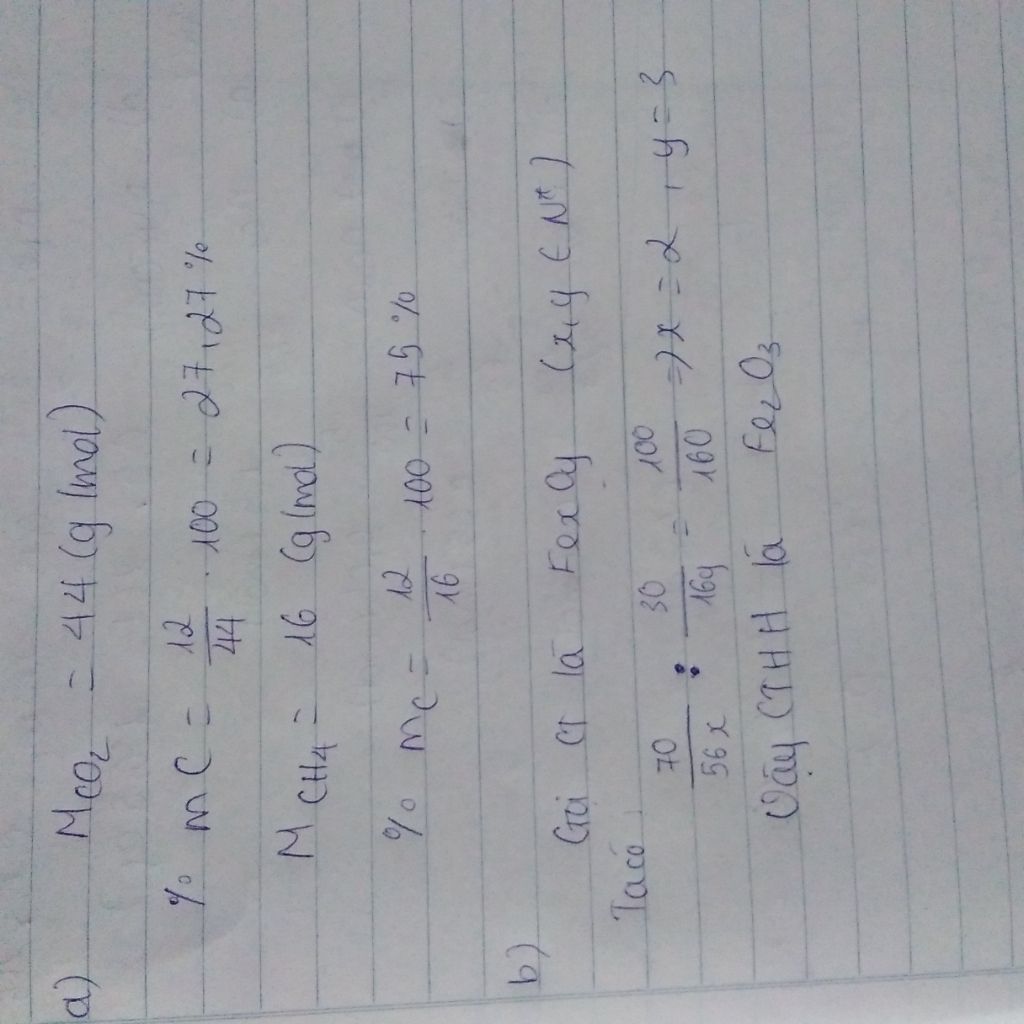 a) M_CO₂ = 44 (g/mol)
% mC = 12/44 . 100 = 27,27 %
M_CH₄ = 16 (g/mol)
% mC = 12/16 . 100 = 75 %
b) Gọi CT là FexOy (x,y ∈ N*)
Ta có:
70/56x : 30/16y = 100/160 => x = 2 , y = 3
Vậy CTHH là Fe₂O₃